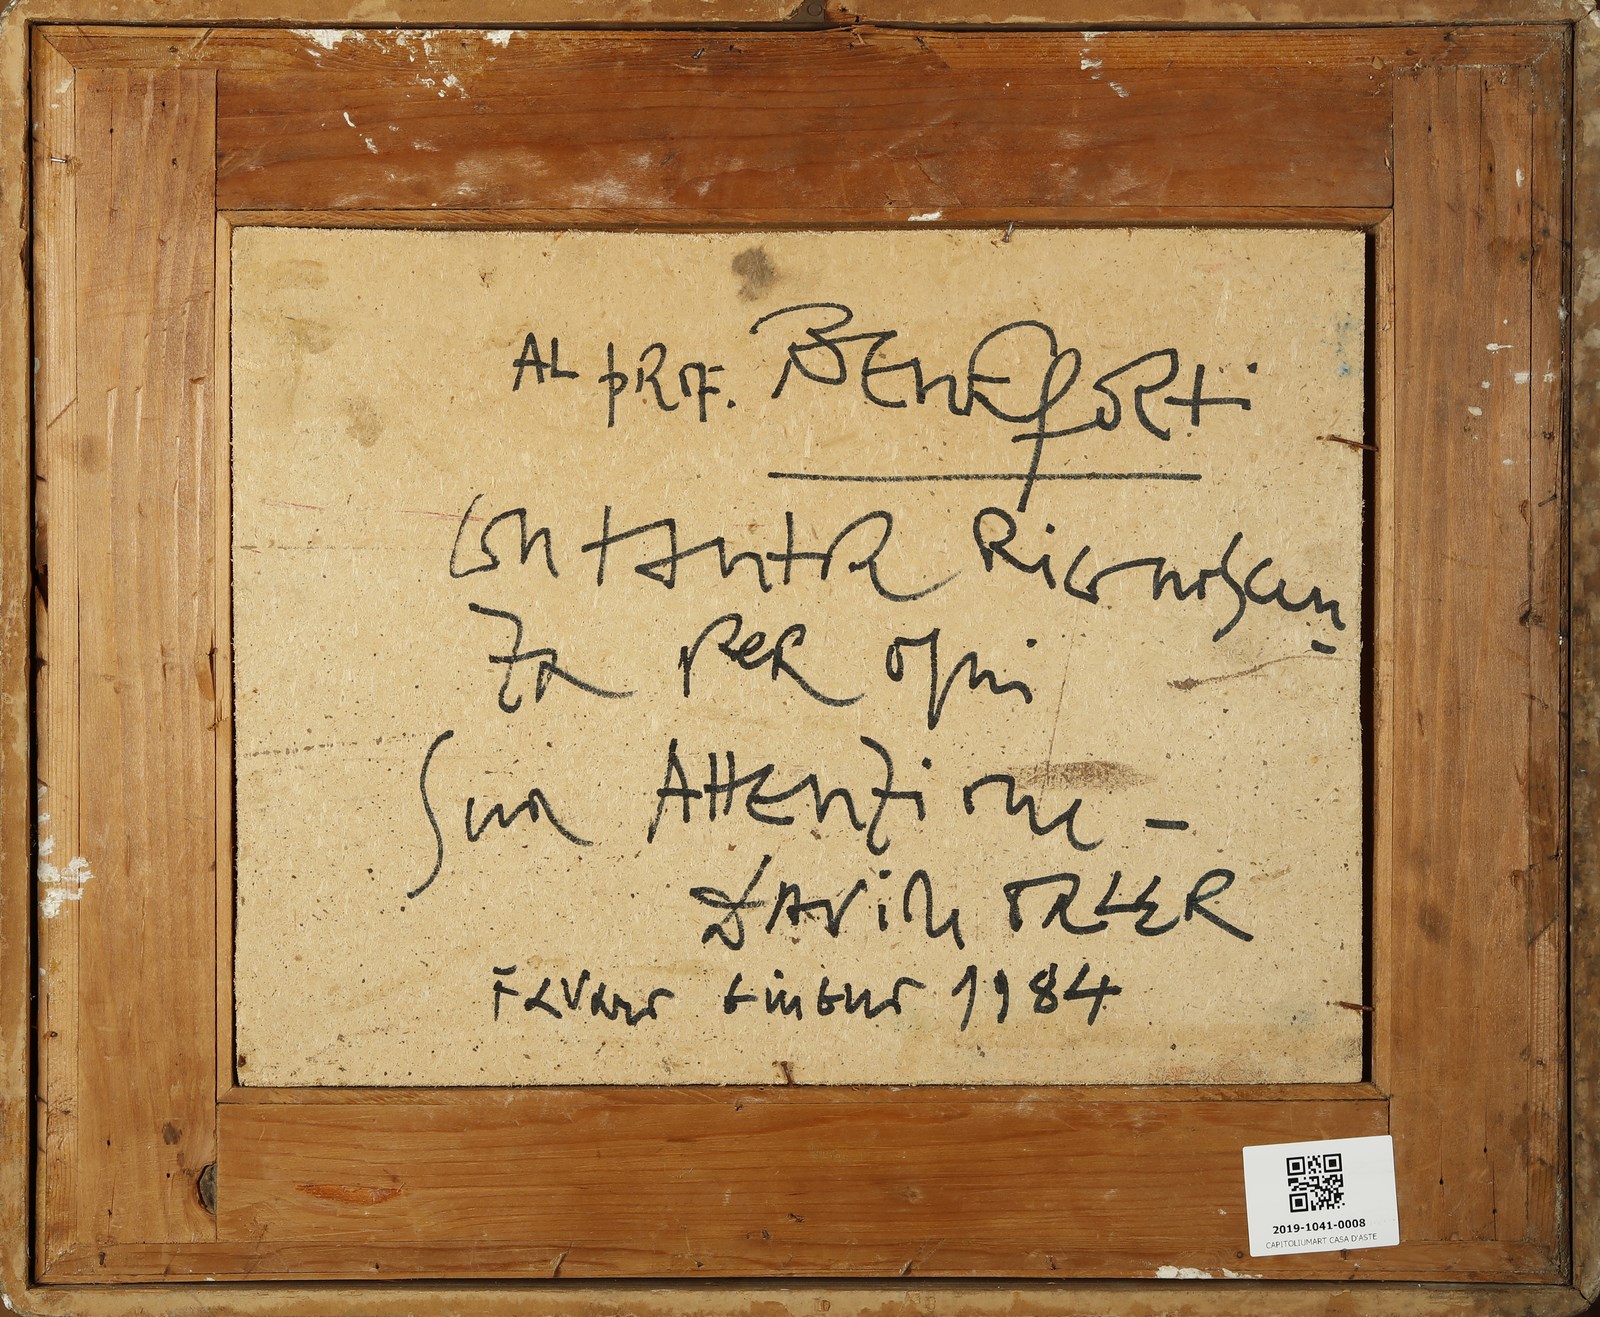 AL PROF. BENEFORTI
CON TANTA RICONOSCEN-
ZA PER OGNI
SUA ATTENZIONE -
DAVIDE ORLER
FAVARO GIUGNO 1984
2019-1041-0008
CAPITOLIUMART CASA D'ASTE